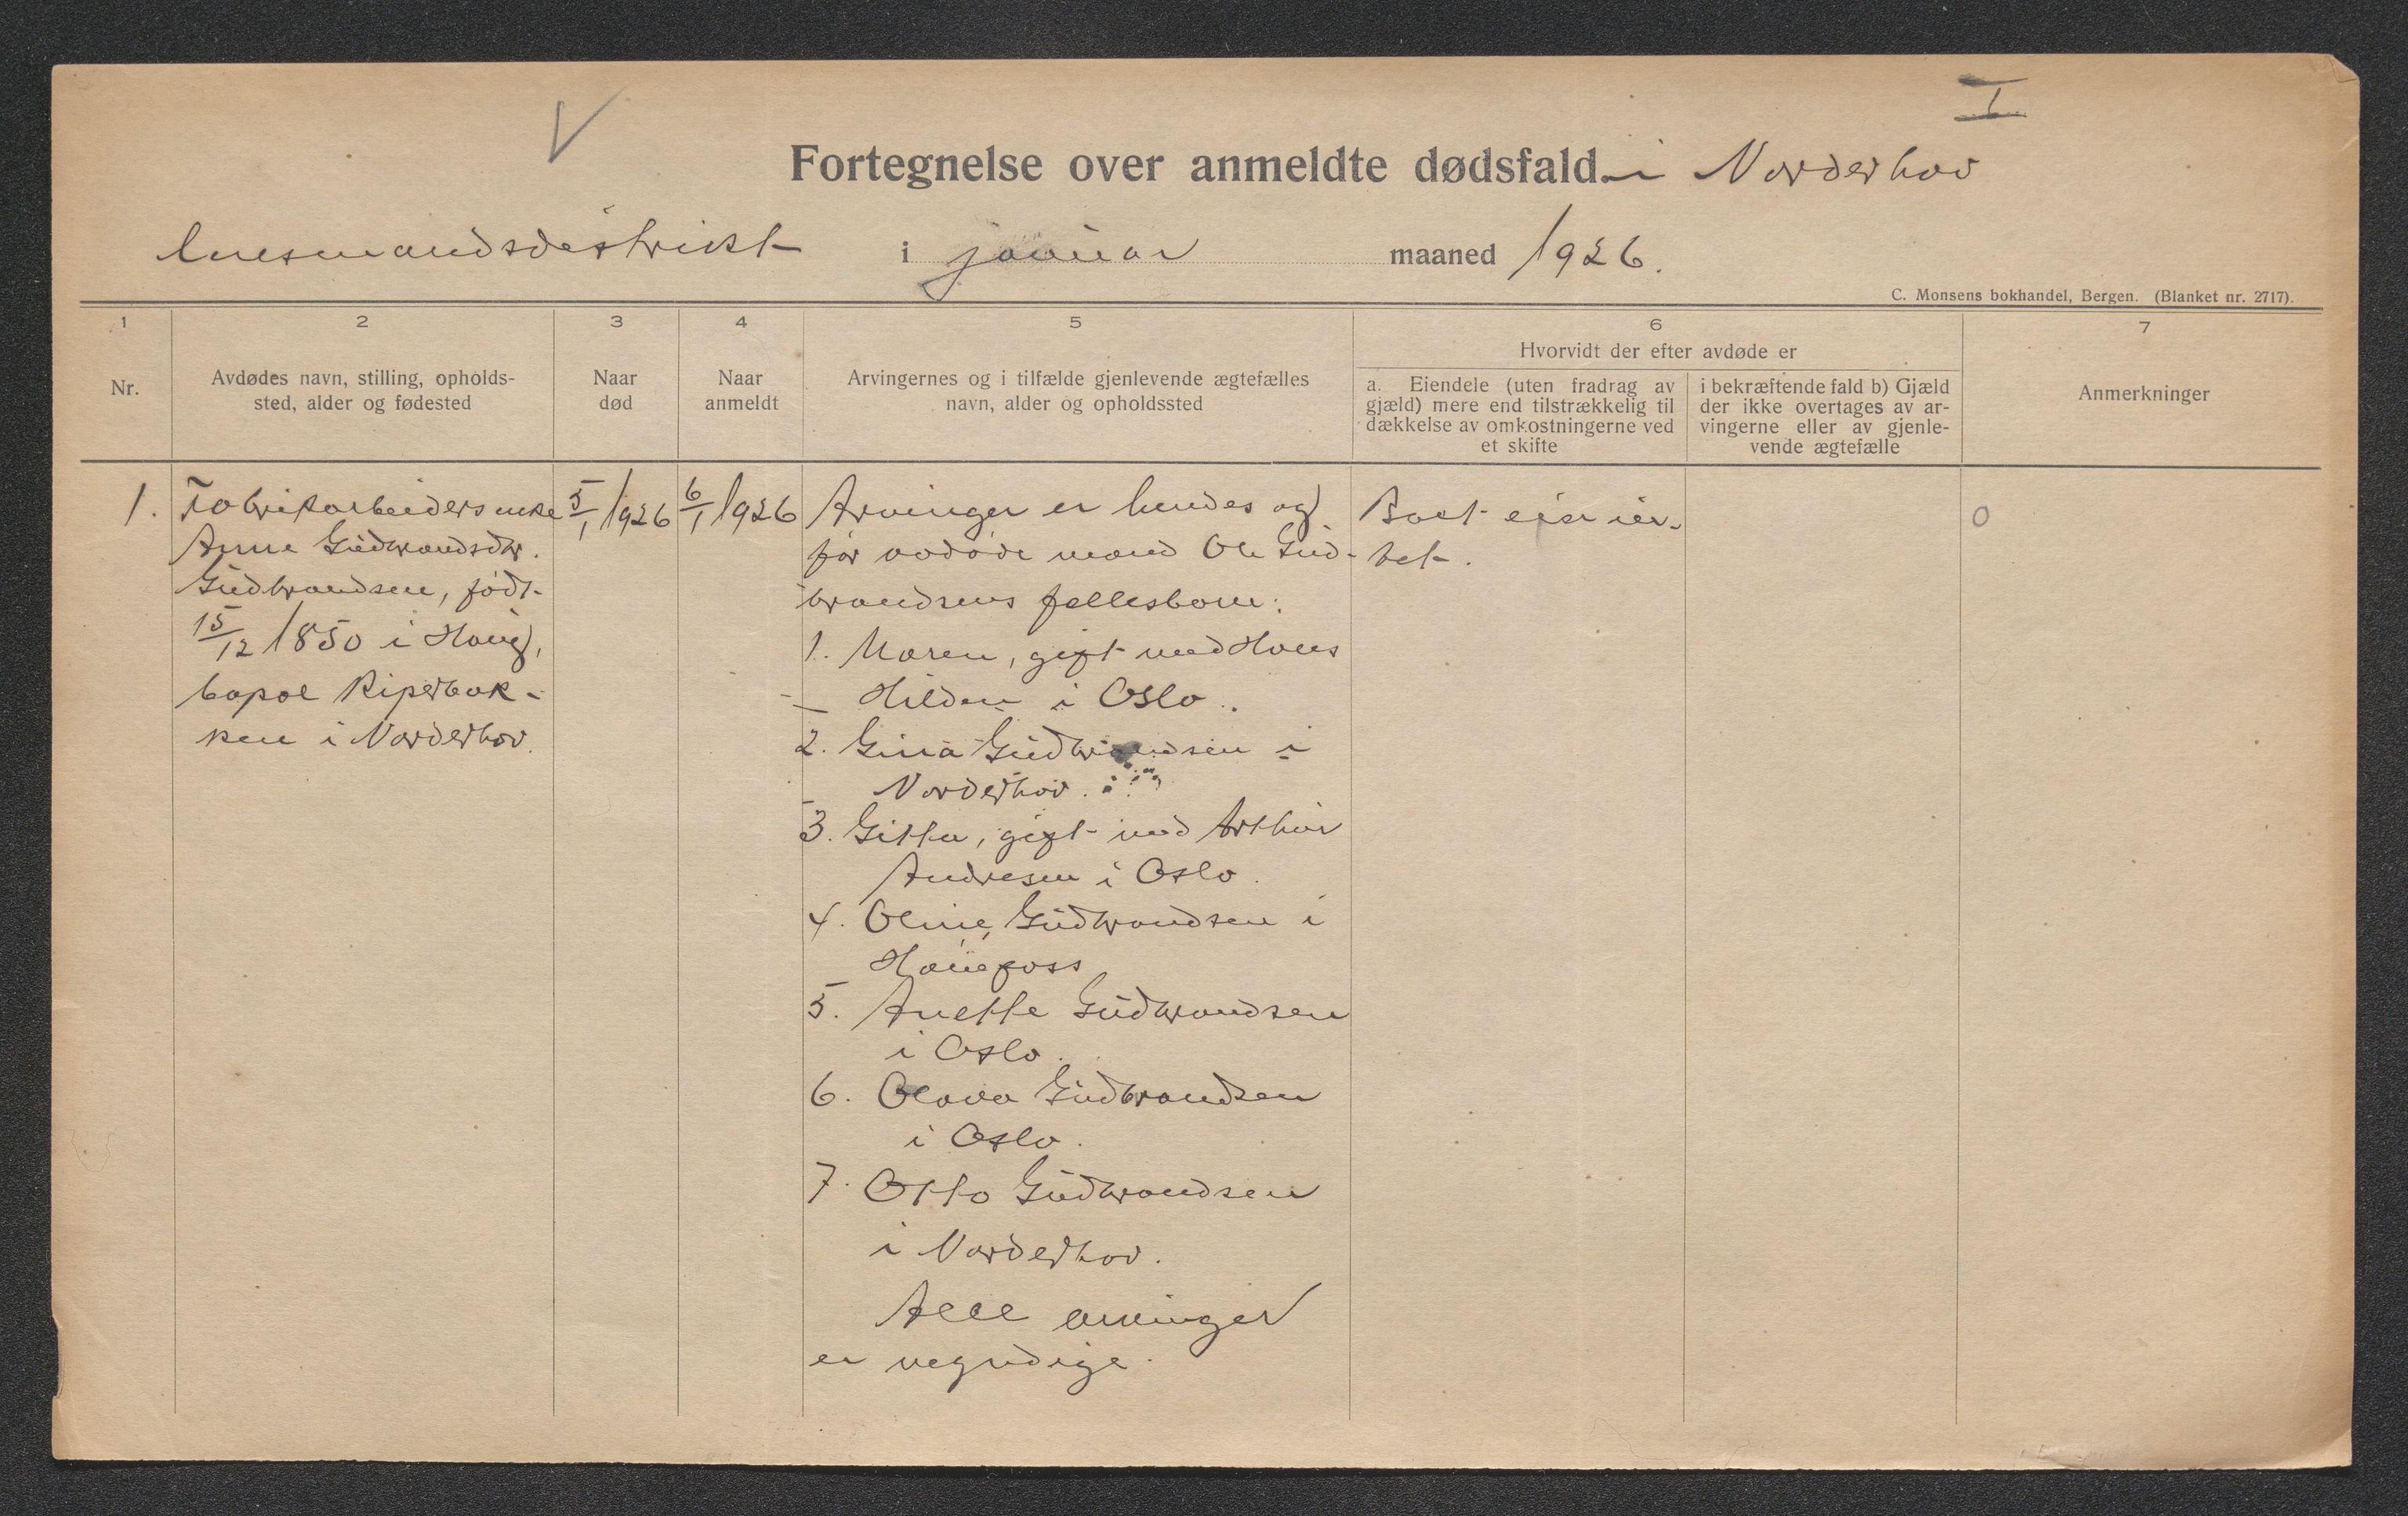 I
V
Fortegnelse over anmeldte dødsfald i Norderhov
lensmandsdistrikt i januar maaned 1926.
C. Monsens bokhandel, Bergen. (Blanket nr. 2717).
1
2
3
4
5
6
7
Nr.
Avdødes navn, stilling, opholds-
sted, alder og fødested
Naar
død
Naar
anmeldt
Arvingernes og i tilfælde gjenlevende ægtefælles
navn, alder og opholdssted
Hvorvidt der efter avdøde er
a. Eiendele (uten fradrag av
gjæld) mere end tilstrækkelig til
dækkelse av omkostningerne ved
et skifte
i bekræftende fald b) Gjæld
der ikke overtages av ar-
vingerne eller av gjenle-
vende ægtefælle
Anmerkninger
1.
Fabrikarbeidersenke
Anne Gudbrandsdtr.
Gudbrandsen, født
15/12 1850 i Haug,
bopæl Riperbak-
ken i Norderhov.
5/1 1926
6/1 1926
Arvinger er hendes og
før avdøde mand Ole Gud-
brandsens fellesbarn:
1. Maren, gift med Hans
Hilden i Oslo.
2. Gina Gudbrandsen i
Norderhov.
3. Gitta, gift med Arthur
Andresen i Oslo.
4. Oline Gudbrandsen i
Hønefoss
5. Anette Gudbrandsen
i Oslo.
6. Olava Gudbrandsen
i Oslo.
7. Otto Gudbrandsen
i Norderhov.
Alle arvinger
er myndige.
Boet eier in-
tet.
0